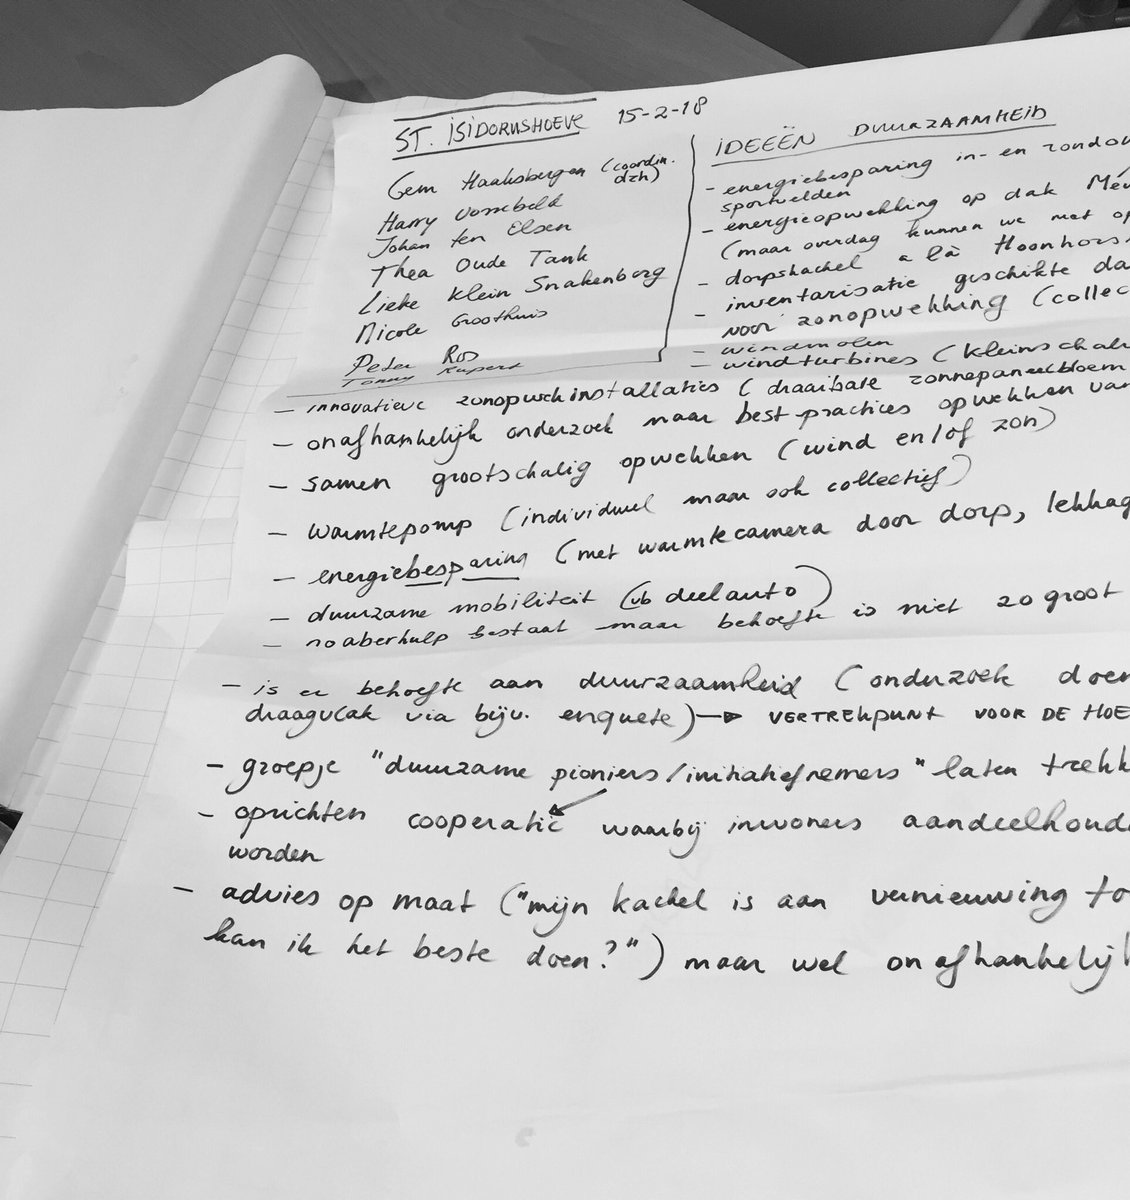 ST. ISIDORUSHOEVE 15-2-18
Gem Haaksbergen (coordin.
dzh)
Harry Vossebeld
Johan ten Elsen
Thea Oude Tank
Lieke Klein Snakenborg
Nicole Groothuis
Peter Ros
Tonny Rupert
IDEEËN DUURZAAMHEID
- energiebesparing in- en rondo
sportvelden
- energieopwekking op dak
(maar overdag kunnen we met
- dorpskachel a là Hoonhors
- inventarisatie geschikte da
voor zonopwekking (collec
- windmolen
- windturbines (kleinscha
- innovatieve zonopwekinstallaties (draaibare zonnepaneelbloem
- onafhankelijk onderzoek naar best-practices opwekken van
- samen grootschalig opwekken (wind en/of zon)
- warmtepomp (individueel maar ook collectief)
- energiebesparing (met warmtecamera door dorp, lekkag
- duurzame mobiliteit (vb deelauto)
- noaberhulp bestaat maar behoefte is niet zo groot
- is er behoefte aan duurzaamheid (onderzoek doen
draagvlak via bijv. enquete) → VERTREKPUNT VOOR DE HOE
- groepje "duurzame pioniers/initiatiefnemers" laten trekk
- oprichten cooperatie waarbij inwoners aandeelhoud
worden
- advies op maat ("mijn kachel is aan vernieuwing to
kan ik het beste doen?") maar wel onafhankelijk